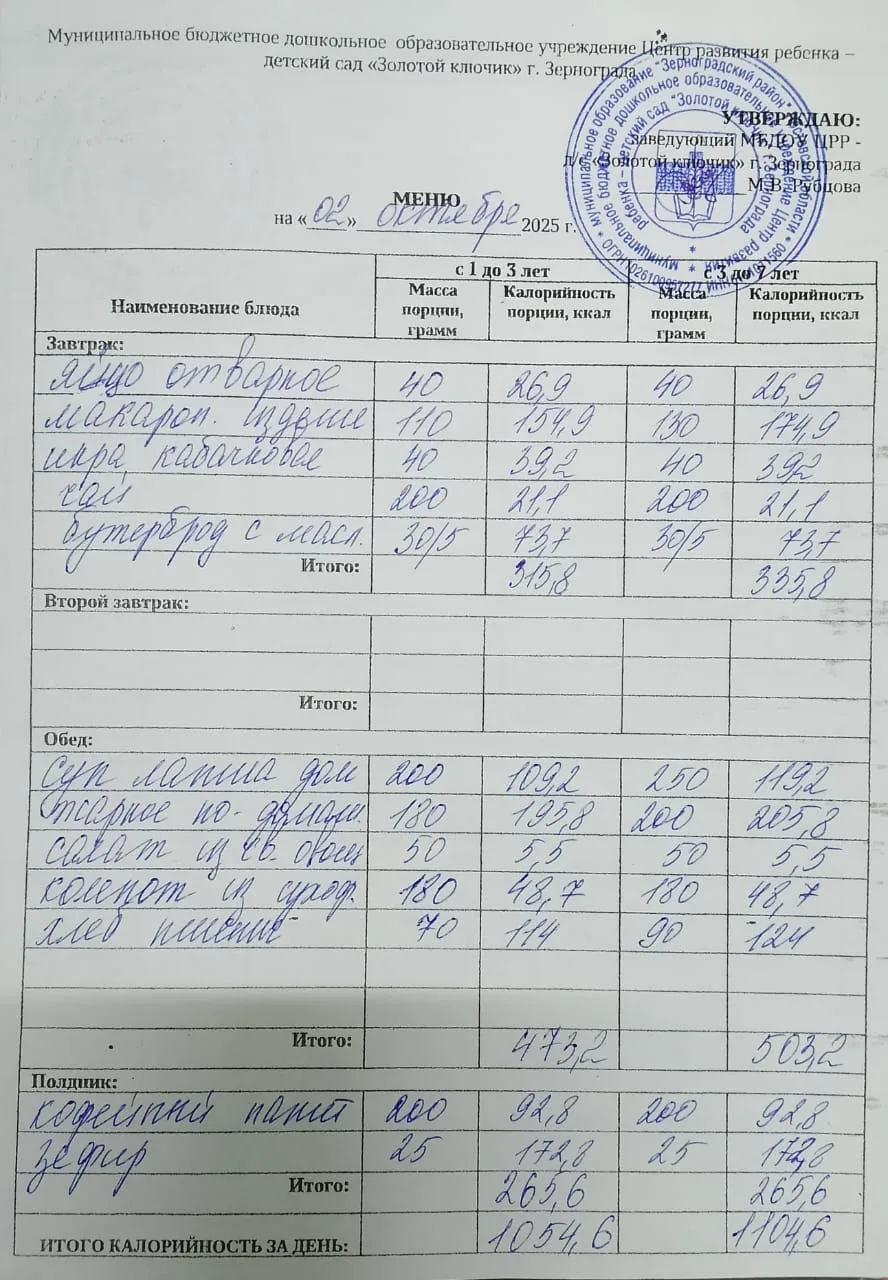 Муниципальное бюджетное дошкольное образовательное учреждение Центр развития ребенка –
детский сад «Золотой ключик» г. Зернограда
УТВЕРЖДАЮ:
заведующий МБДОУ ЦРР -
д/с «Золотой ключик» г. Зернограда
М.В. Рубцова
МЕНЮ
на « 02 » октября 2025 г.
Наименование блюда с 1 до 3 лет с 3 до 7 лет
Масса порции, грамм Калорийность порции, ккал Масса порции, грамм Калорийность порции, ккал
Завтрак:
яйцо отварное 40 26,9 40 26,9
макарон. изделие 110 154,9 130 174,9
икра кабачковая 40 39,2 40 39,2
чай 200 21,1 200 21,1
бутерброд с масл. 30/5 73,7 30/5 73,7
Итого: 315,8 335,8
Второй завтрак:
Итого:
Обед:
суп лапша дом 200 109,2 250 119,2
жаркое по-домаш. 180 195,8 200 205,8
салат из св. овощ 50 5,5 50 5,5
компот из сухоф. 180 48,7 180 48,7
хлеб пшенич 70 114 90 124
Итого: 473,2 503,2
Полдник:
кофейный напит 200 92,8 200 92,8
зефир 25 172,8 25 172,8
Итого: 265,6 265,6
ИТОГО КАЛОРИЙНОСТЬ ЗА ДЕНЬ: 1054,6 1104,6